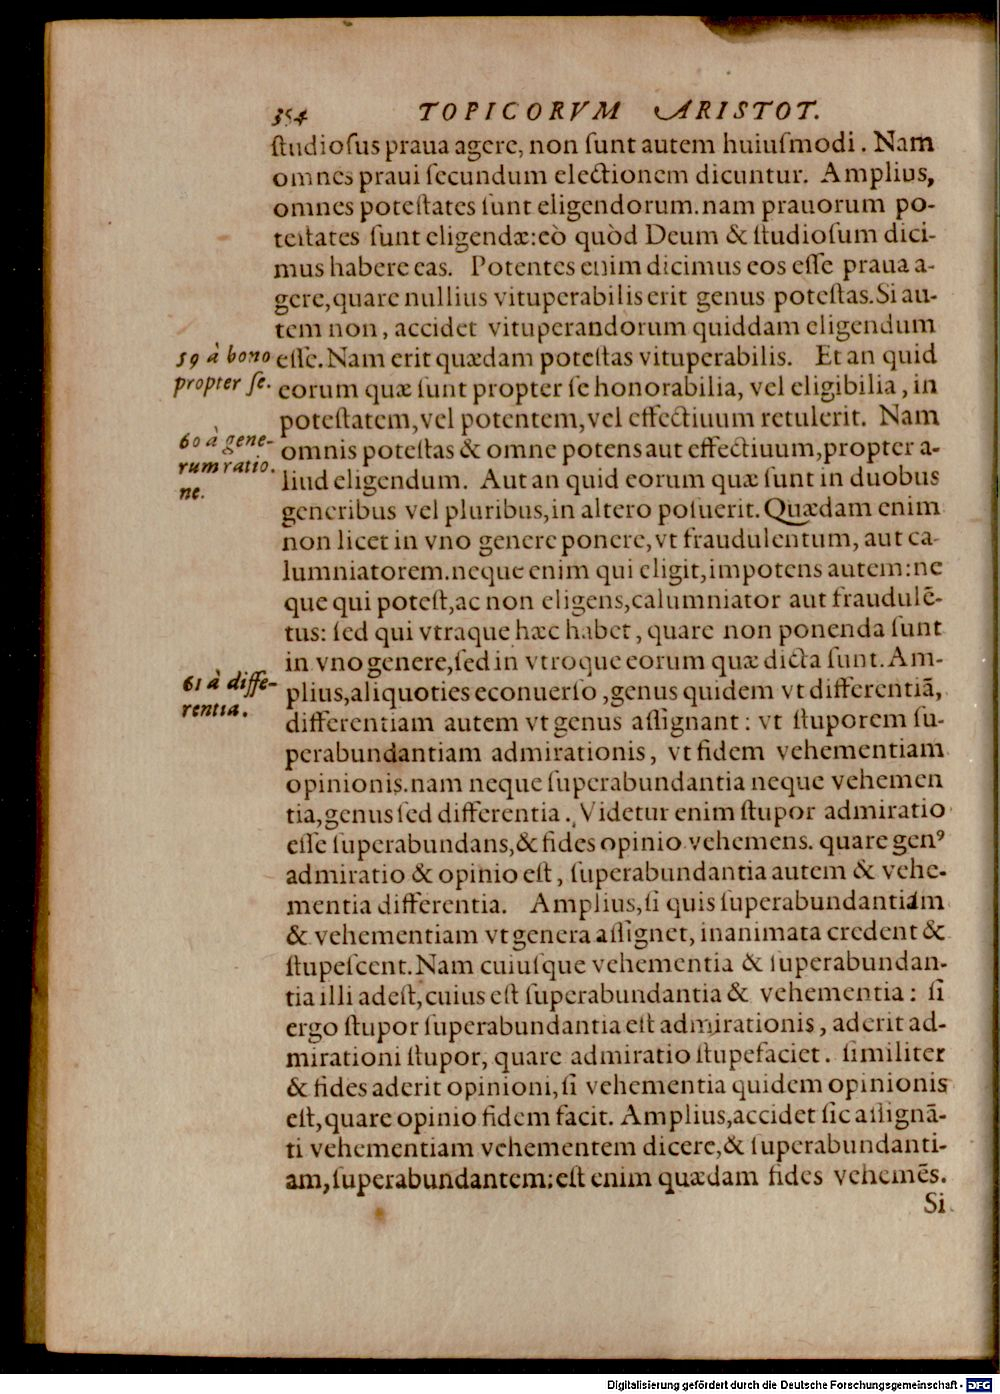 354 TOPICORVM ARISTOT.
ſtudioſus praua agere, non ſunt autem huiuſmodi. Nam
omnes praui ſecundum electionem dicuntur. Amplius,
omnes poteſtates ſunt eligendorum.nam prauorum po-
teſtates ſunt eligendæ:eò quòd Deum & ſtudioſum dici-
mus habere eas. Potentes enim dicimus eos eſſe praua a-
gere,quare nullius vituperabilis erit genus poteſtas.Si au-
tem non, accidet vituperandorum quiddam eligendum
59 à bono
propter ſe.
eſſe.Nam erit quædam poteſtas vituperabilis. Et an quid
eorum quæ ſunt propter ſe honorabilia, vel eligibilia, in
poteſtatem,vel potentem,vel effectiuum retulerit. Nam
60 à gene-
rum ratio.
ne.
omnis poteſtas & omne potens aut effectiuum,propter a-
liud eligendum. Aut an quid eorum quæ ſunt in duobus
generibus vel pluribus,in altero poſuerit.Quædam enim
non licet in vno genere ponere,vt fraudulentum, aut ca-
lumniatorem.neque enim qui eligit,impotens autem:ne
que qui poteſt,ac non eligens,calumniator aut fraudulē-
tus: ſed qui vtraque hæc habet, quare non ponenda ſunt
in vno genere,ſed in vtroque eorum quæ dicta ſunt.Am-
61 à diffe-
rentia.
plius,aliquoties econuerſo,genus quidem vt differentiā,
differentiam autem vt genus aſſignant: vt ſtuporem ſu-
perabundantiam admirationis, vt fidem vehementiam
opinionis.nam neque ſuperabundantia neque vehemen
tia,genus ſed differentia. Videtur enim ſtupor admiratio
eſſe ſuperabundans,& fides opinio vehemens. quare genꝰ
admiratio & opinio eſt, ſuperabundantia autem & vehe-
mentia differentia. Amplius,ſi quis ſuperabundantiam
& vehementiam vt genera aſſignet, inanimata credent &
ſtupeſcent.Nam cuiuſque vehementia & ſuperabundan-
tia illi adeſt,cuius eſt ſuperabundantia & vehementia: ſi
ergo ſtupor ſuperabundantia eſt admirationis, aderit ad-
mirationi ſtupor, quare admiratio ſtupefaciet. ſimiliter
& fides aderit opinioni,ſi vehementia quidem opinionis
eſt,quare opinio fidem facit. Amplius,accidet ſic aſſignā-
ti vehementiam vehementem dicere,& ſuperabundanti-
am,ſuperabundantem:eſt enim quædam fides vehemēs.
Si
Digitalisierung gefördert durch die Deutsche Forschungsgemeinschaft - DFG